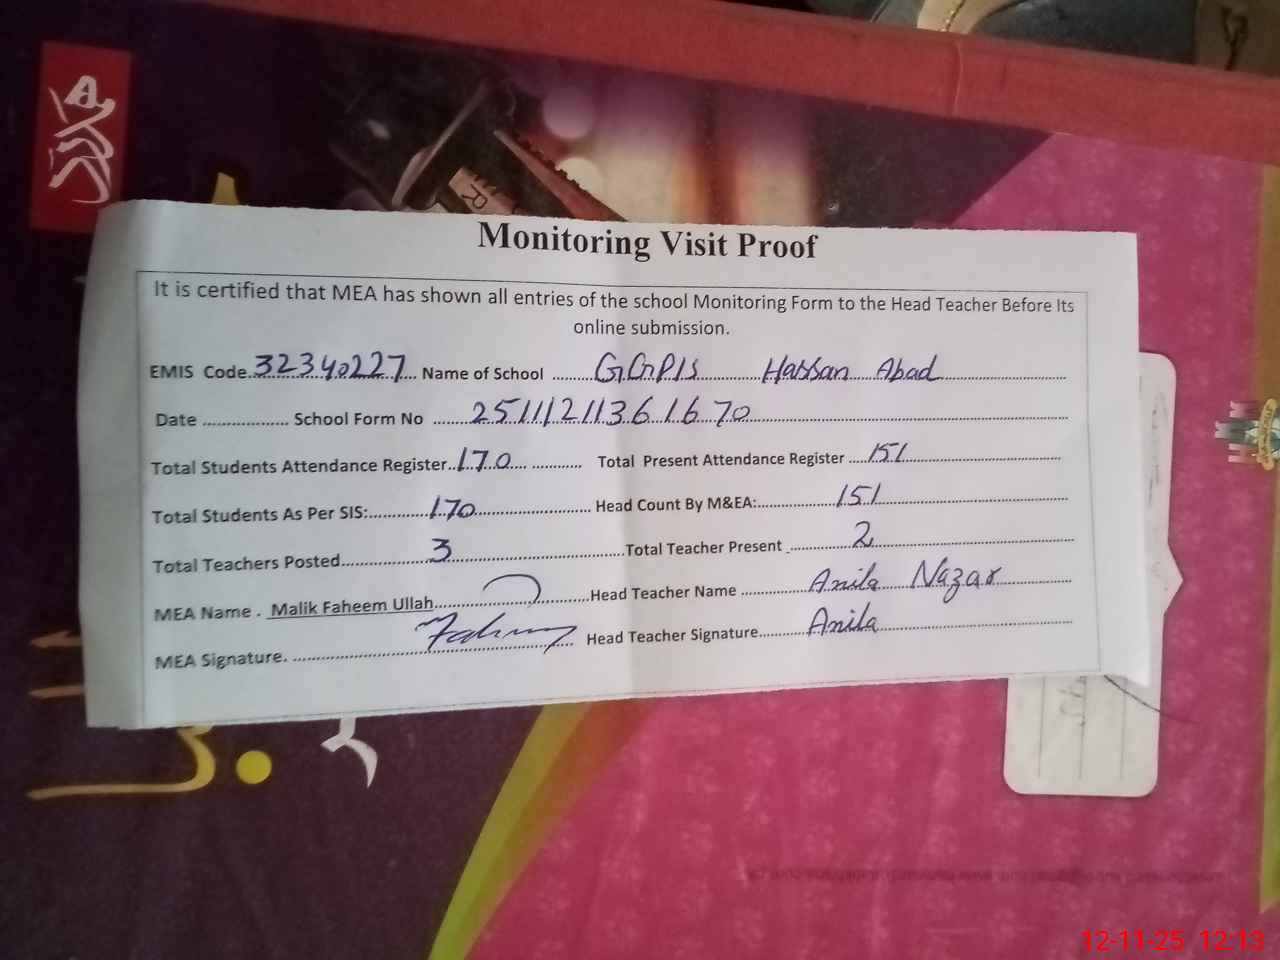 Monitoring Visit Proof
It is certified that MEA has shown all entries of the school Monitoring Form to the Head Teacher Before Its
online submission.
EMIS Code. 32340227 Name of School GGPIS Hassan Abad
Date .................. School Form No 25111211361670
Total Students Attendance Register 170 Total Present Attendance Register 151
Total Students As Per SIS: 170 Head Count By M&EA: 151
Total Teachers Posted 3 Total Teacher Present 2
MEA Name . Malik Faheem Ullah Head Teacher Name Anila Nazar
MEA Signature. Fahim Head Teacher Signature Anila
12-11-25 12:13